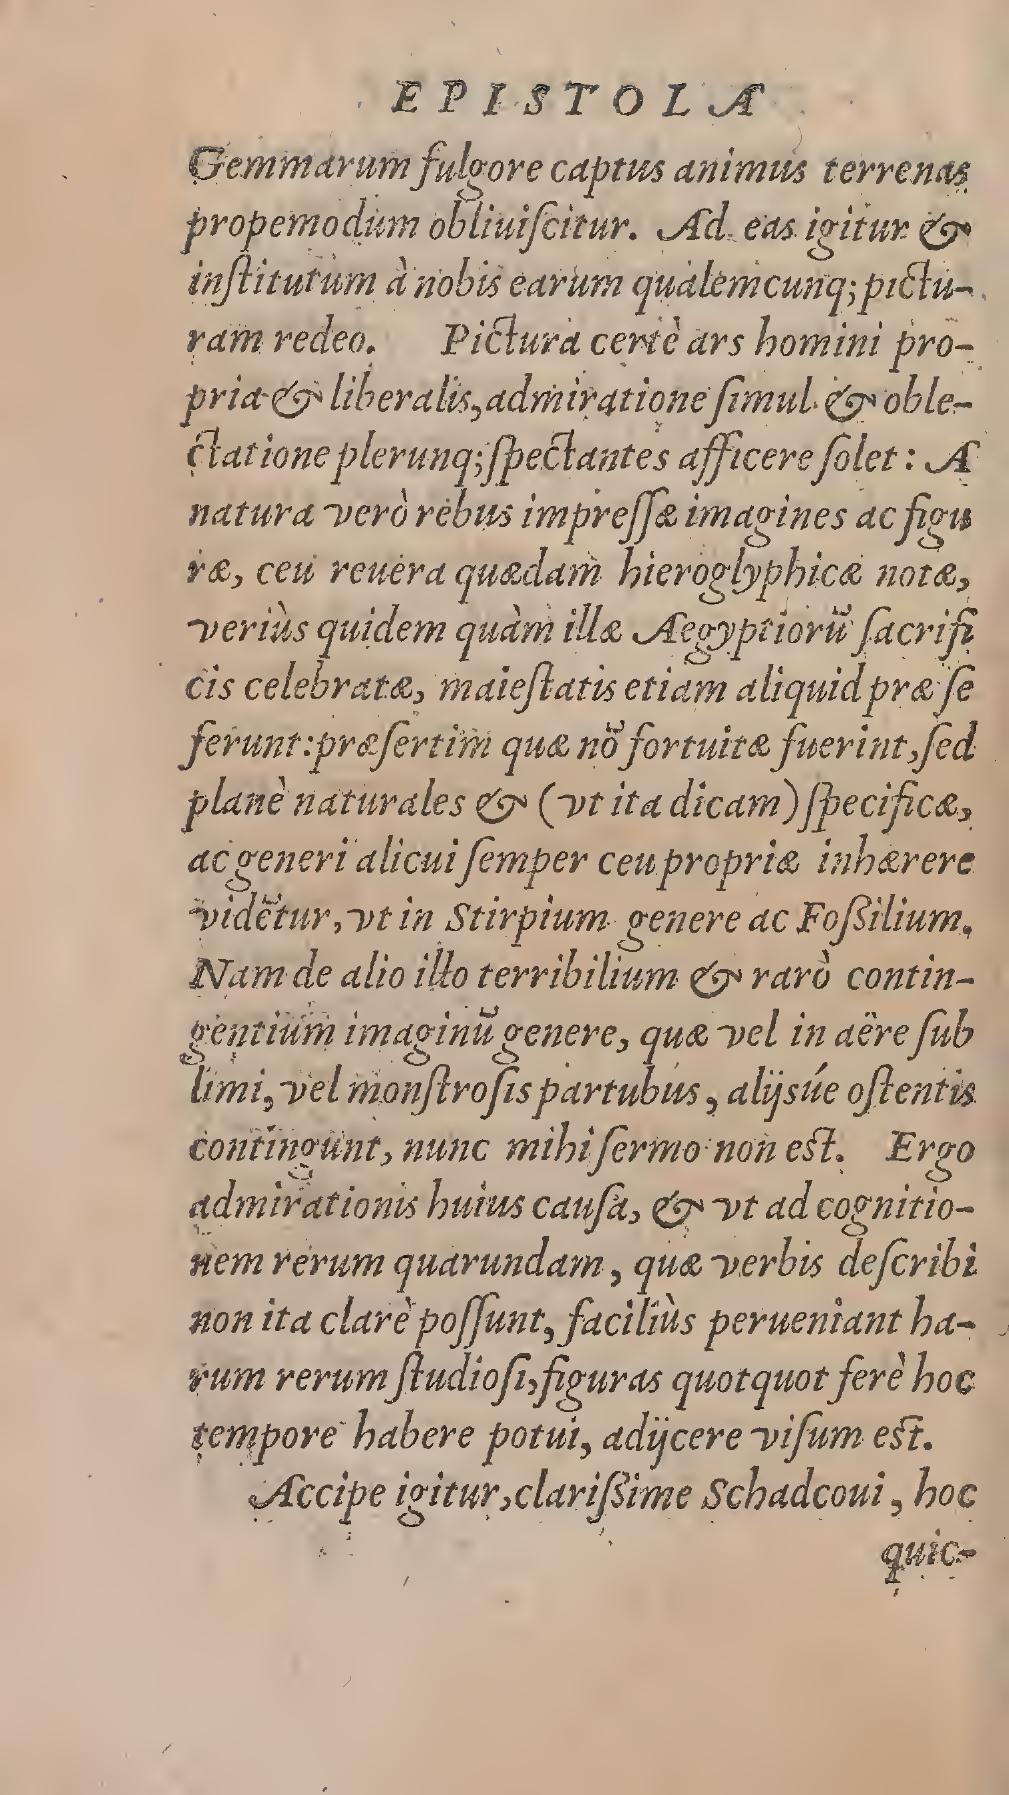 EPISTOLA
Gemmarum fulgore captus animus terrenas
propemodum obliuiſcitur. Ad eas igitur &
inſtitutum à nobis earum qualemcunq; pictu-
ram redeo. Pictura certè ars homini pro-
pria & liberalis, admiratione ſimul & oble-
ctatione plerunq; ſpectantes afficere ſolet: A
natura verò rebus impreſſæ imagines ac figu
ræ, ceu reuera quædam hieroglyphicæ notæ,
veriùs quidem quàm illæ Aegyptiorũ ſacrifi
cis celebratæ, maieſtatis etiam aliquid præ ſe
ferunt: præſertim quæ nõ fortuitæ fuerint, ſed
planè naturales & (vt ita dicam) ſpecificæ,
ac generi alicui ſemper ceu propriæ inhærere
vidẽtur, vt in Stirpium genere ac Foſſilium.
Nam de alio illo terribilium & rarò contin-
gentium imaginũ genere, quæ vel in aëre ſub
limi, vel monſtroſis partubus, alijsúe oſtentis
contingunt, nunc mihi ſermo non est. Ergo
admirationis huius cauſa, & vt ad cognitio-
nem rerum quarundam, quæ verbis deſcribi
non ita clarè poſſunt, faciliùs perueniant ha-
rum rerum ſtudioſi, figuras quotquot ferè hoc
tempore habere potui, adijcere viſum est.
Accipe igitur, clariſſime Schadcoui, hoc
quic-